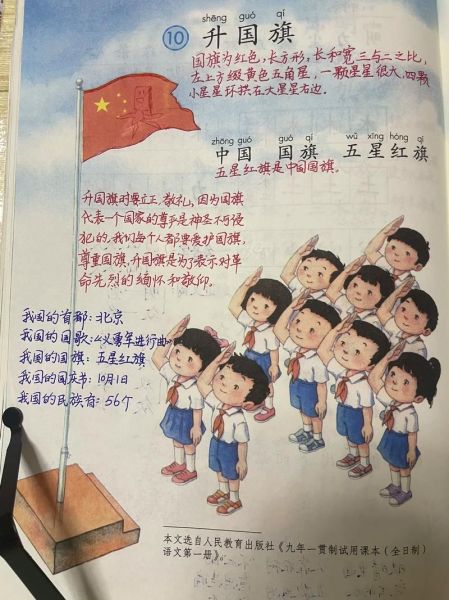 shēng guó qí
10 升国旗
国旗为红色,长方形,长和宽三与二之比,
左上方缀黄色五角星,一颗星星很大,四颗
小星星环拱在大星星右边.
zhōng guó guó qí wǔ xīng hóng qí
中国 国旗 五星红旗
五星红旗是中国国旗。
升国旗时要立正敬礼,因为国旗
代表一个国家的尊严是神圣不可侵
犯的,我们每个人都要爱护国旗,
尊重国旗,升国旗是为了表示对革
命先烈的缅怀和敬仰。
我国的首都:北京
我国的国歌:《义勇军进行曲》
我国的国旗:五星红旗
我国的国庆节:10月1日
我国的民族有:56个
本文选自人民教育出版社《九年一贯制试用课本(全日制)
语文第一册》。